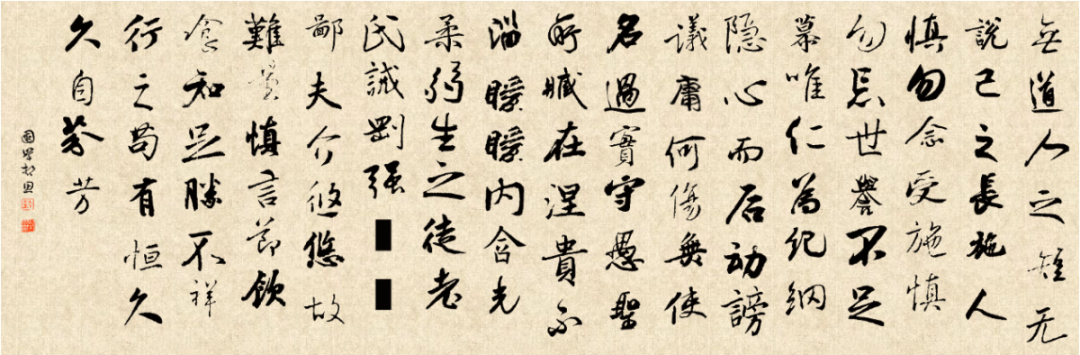 無道人之短无
說己之長施人
慎勿念受施慎
勿忘世譽不足
慕唯仁為紀綱
隐心而后动謗
議庸何傷無使
名過實守愚聖
所臧在涅貴不
淄曖曖内含光
柔弱生之徒老
氏誡剛强
鄙夫介悠悠故
難量慎言節飲
食知足勝不祥
行之苟有恒久
久自芬芳